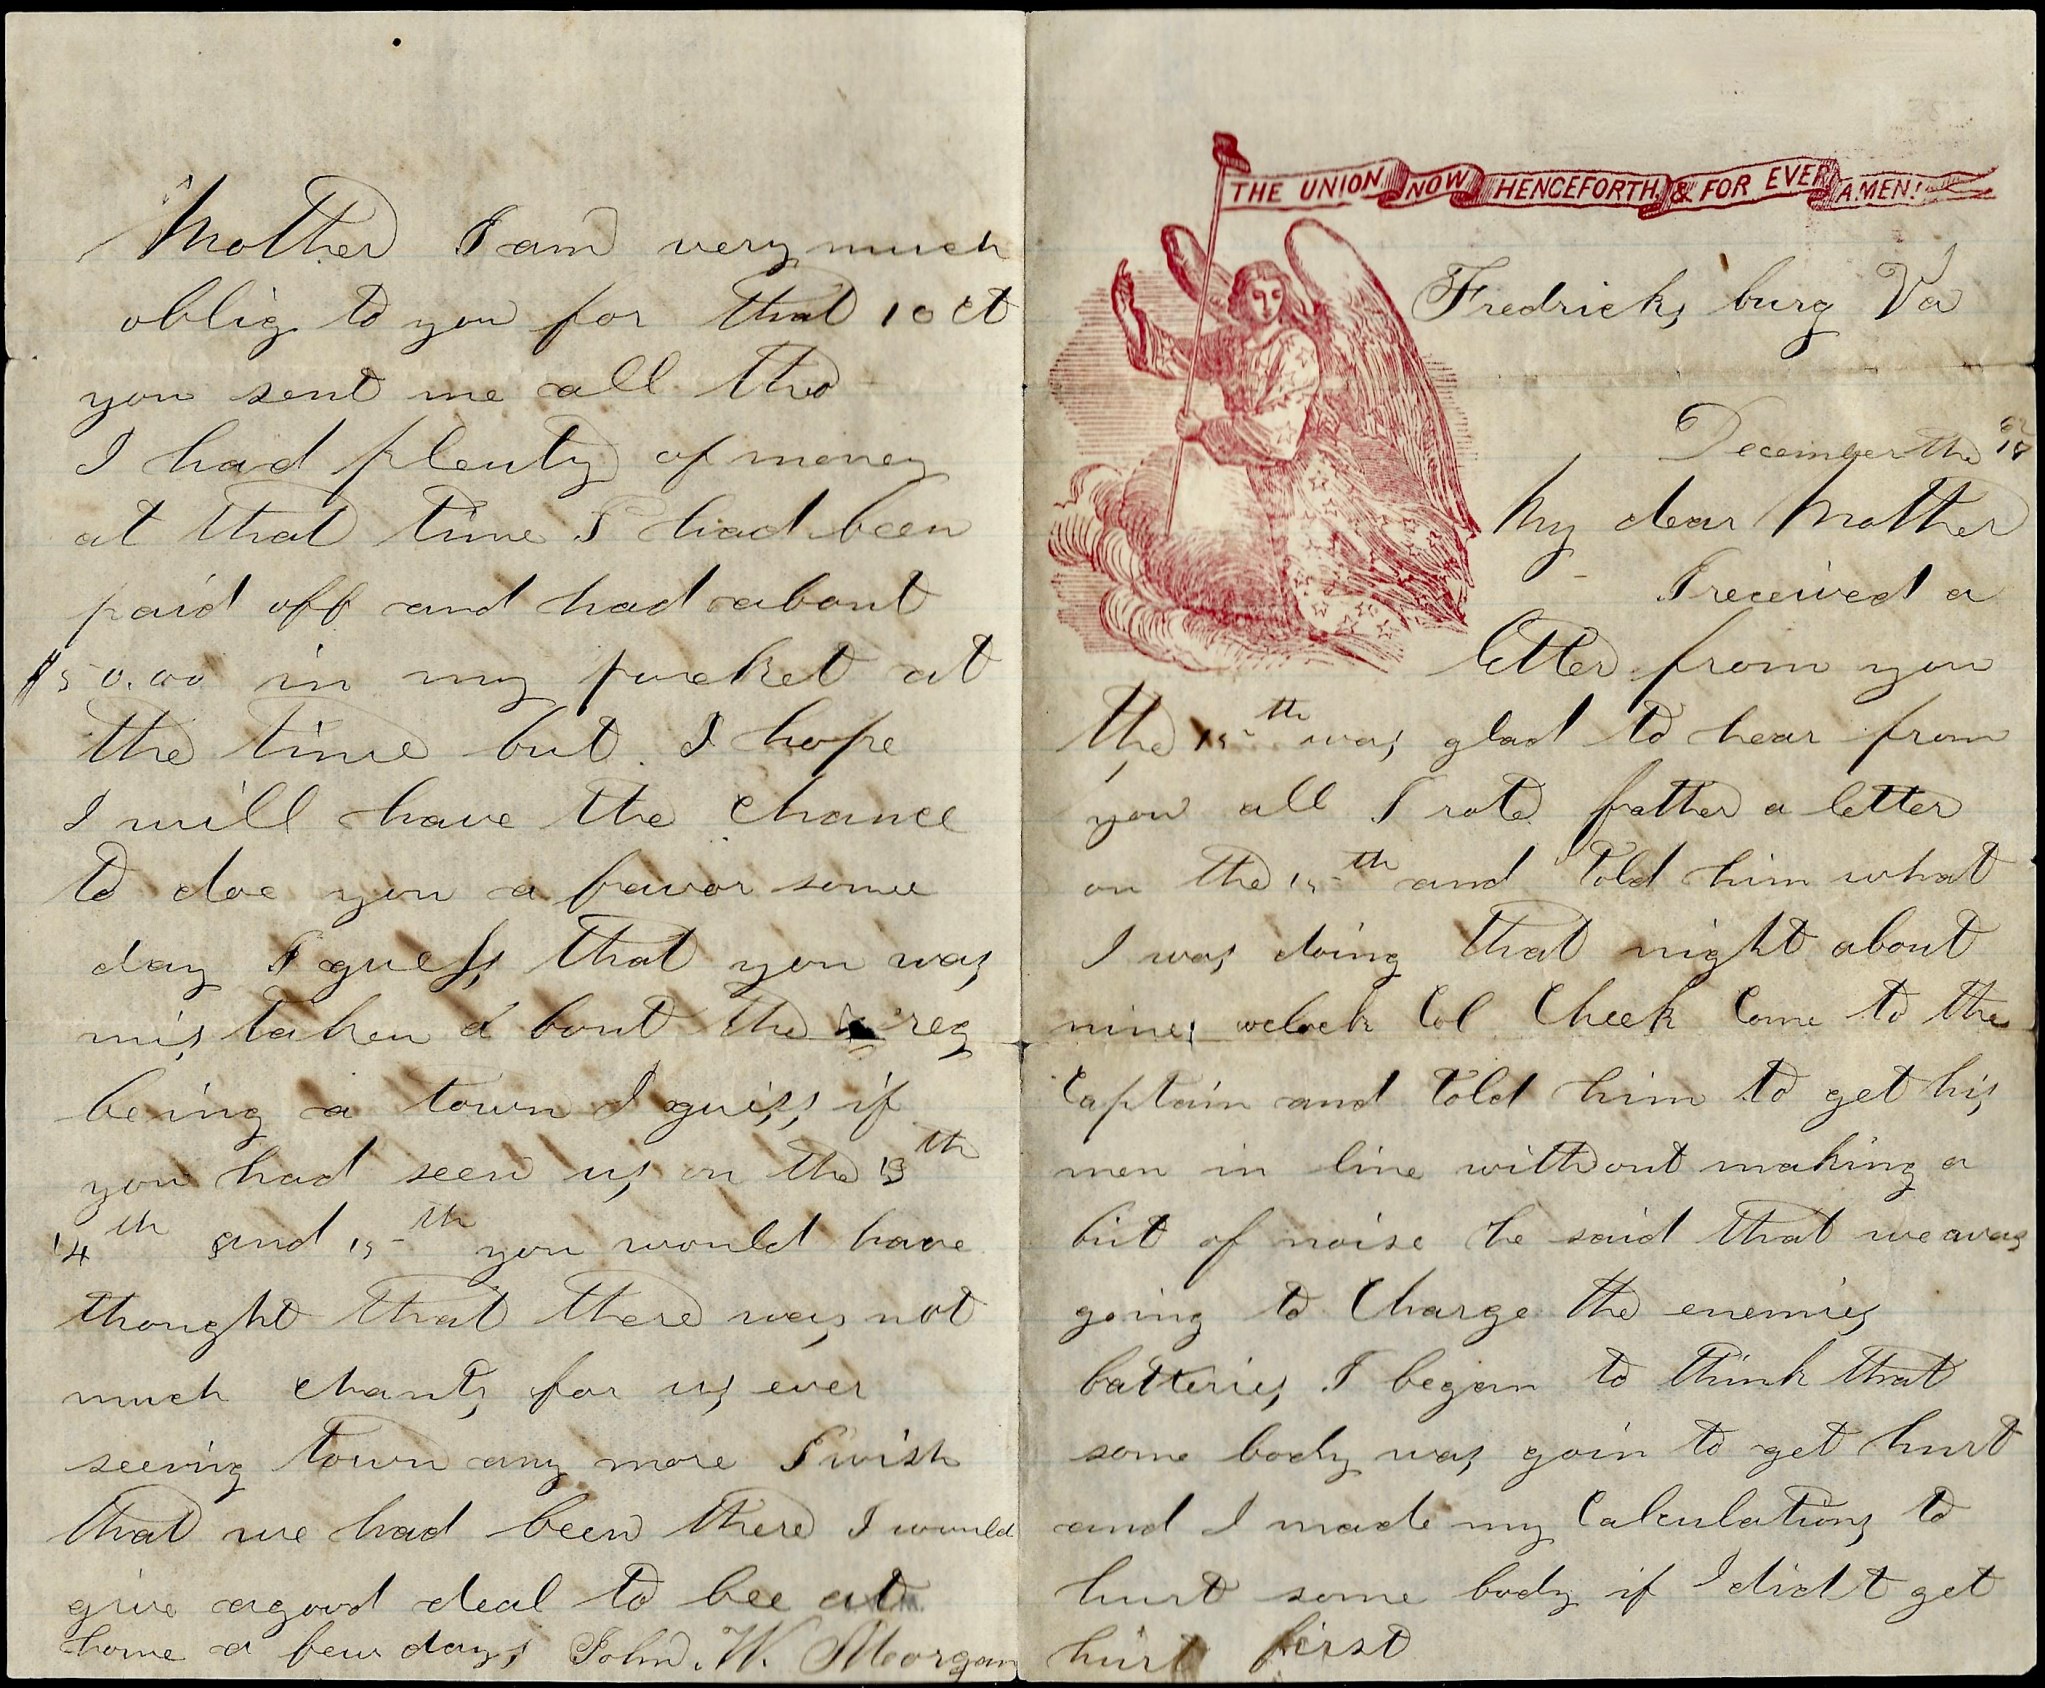 Mother I am very much
oblig to you for that 10 ct
you sent me all tho
I had plenty of money
at that time I had been
paid off and had about
$50.00 in my pocket at
the time but I hope
I will have the chance
to doe you a favor some
day I guess that you was
mis taken a bout the reg
being a town I guess if
you had seen us on the 13th
14th and 15th you would have
thought that there was not
much chants for us ever
seeing town any more I wish
that we had been there I would
give a good deal to bee at
home a few days John. W. Morgan
THE UNION NOW HENCEFORTH & FOR EVER AMEN!
Fredricks burg Va
December the
My dear Mother
I received a
letter from you
the 15th was glad to hear from
you all I rote father a letter
on the 15th and told him what
I was doing that night about
nine oclock Col Cheek Come to the
Captain and told him to get his
men in line without making a
bit of noise he said that we was
going to Charge the enemies
batteries I began to think that
some body was goin to get hurt
and I made my Calculations to
hurt some body if I did t get
hurt first